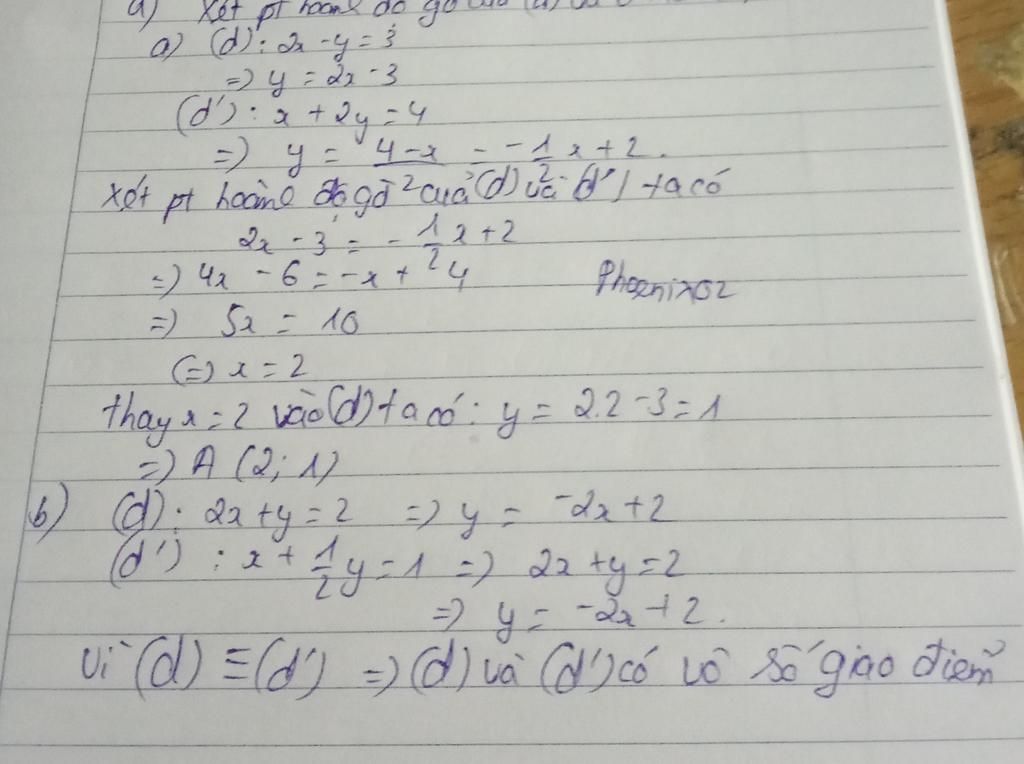 a) Xét pt hoành độ gđ của (d) và
a) (d): 2x - y = 3
=> y = 2x - 3
(d'): x + 2y = 4
=> y = \frac{4-x}{2} = -\frac{1}{2}x + 2.
Xét pt hoành độ gđ của (d) và (d') ta có
2x - 3 = -\frac{1}{2}x + 2
=> 4x - 6 = -x + 4 Phoenix02
=> 5x = 10
(=) x = 2
thay x = 2 vào (d) ta có: y = 2.2 - 3 = 1
=> A (2; 1)
b) (d): 2x + y = 2 => y = -2x + 2
(d'): x + \frac{1}{2}y = 1 => 2x + y = 2
=> y = -2x + 2.
Vì (d) ≡ (d') => (d) và (d') có vô số giao điểm